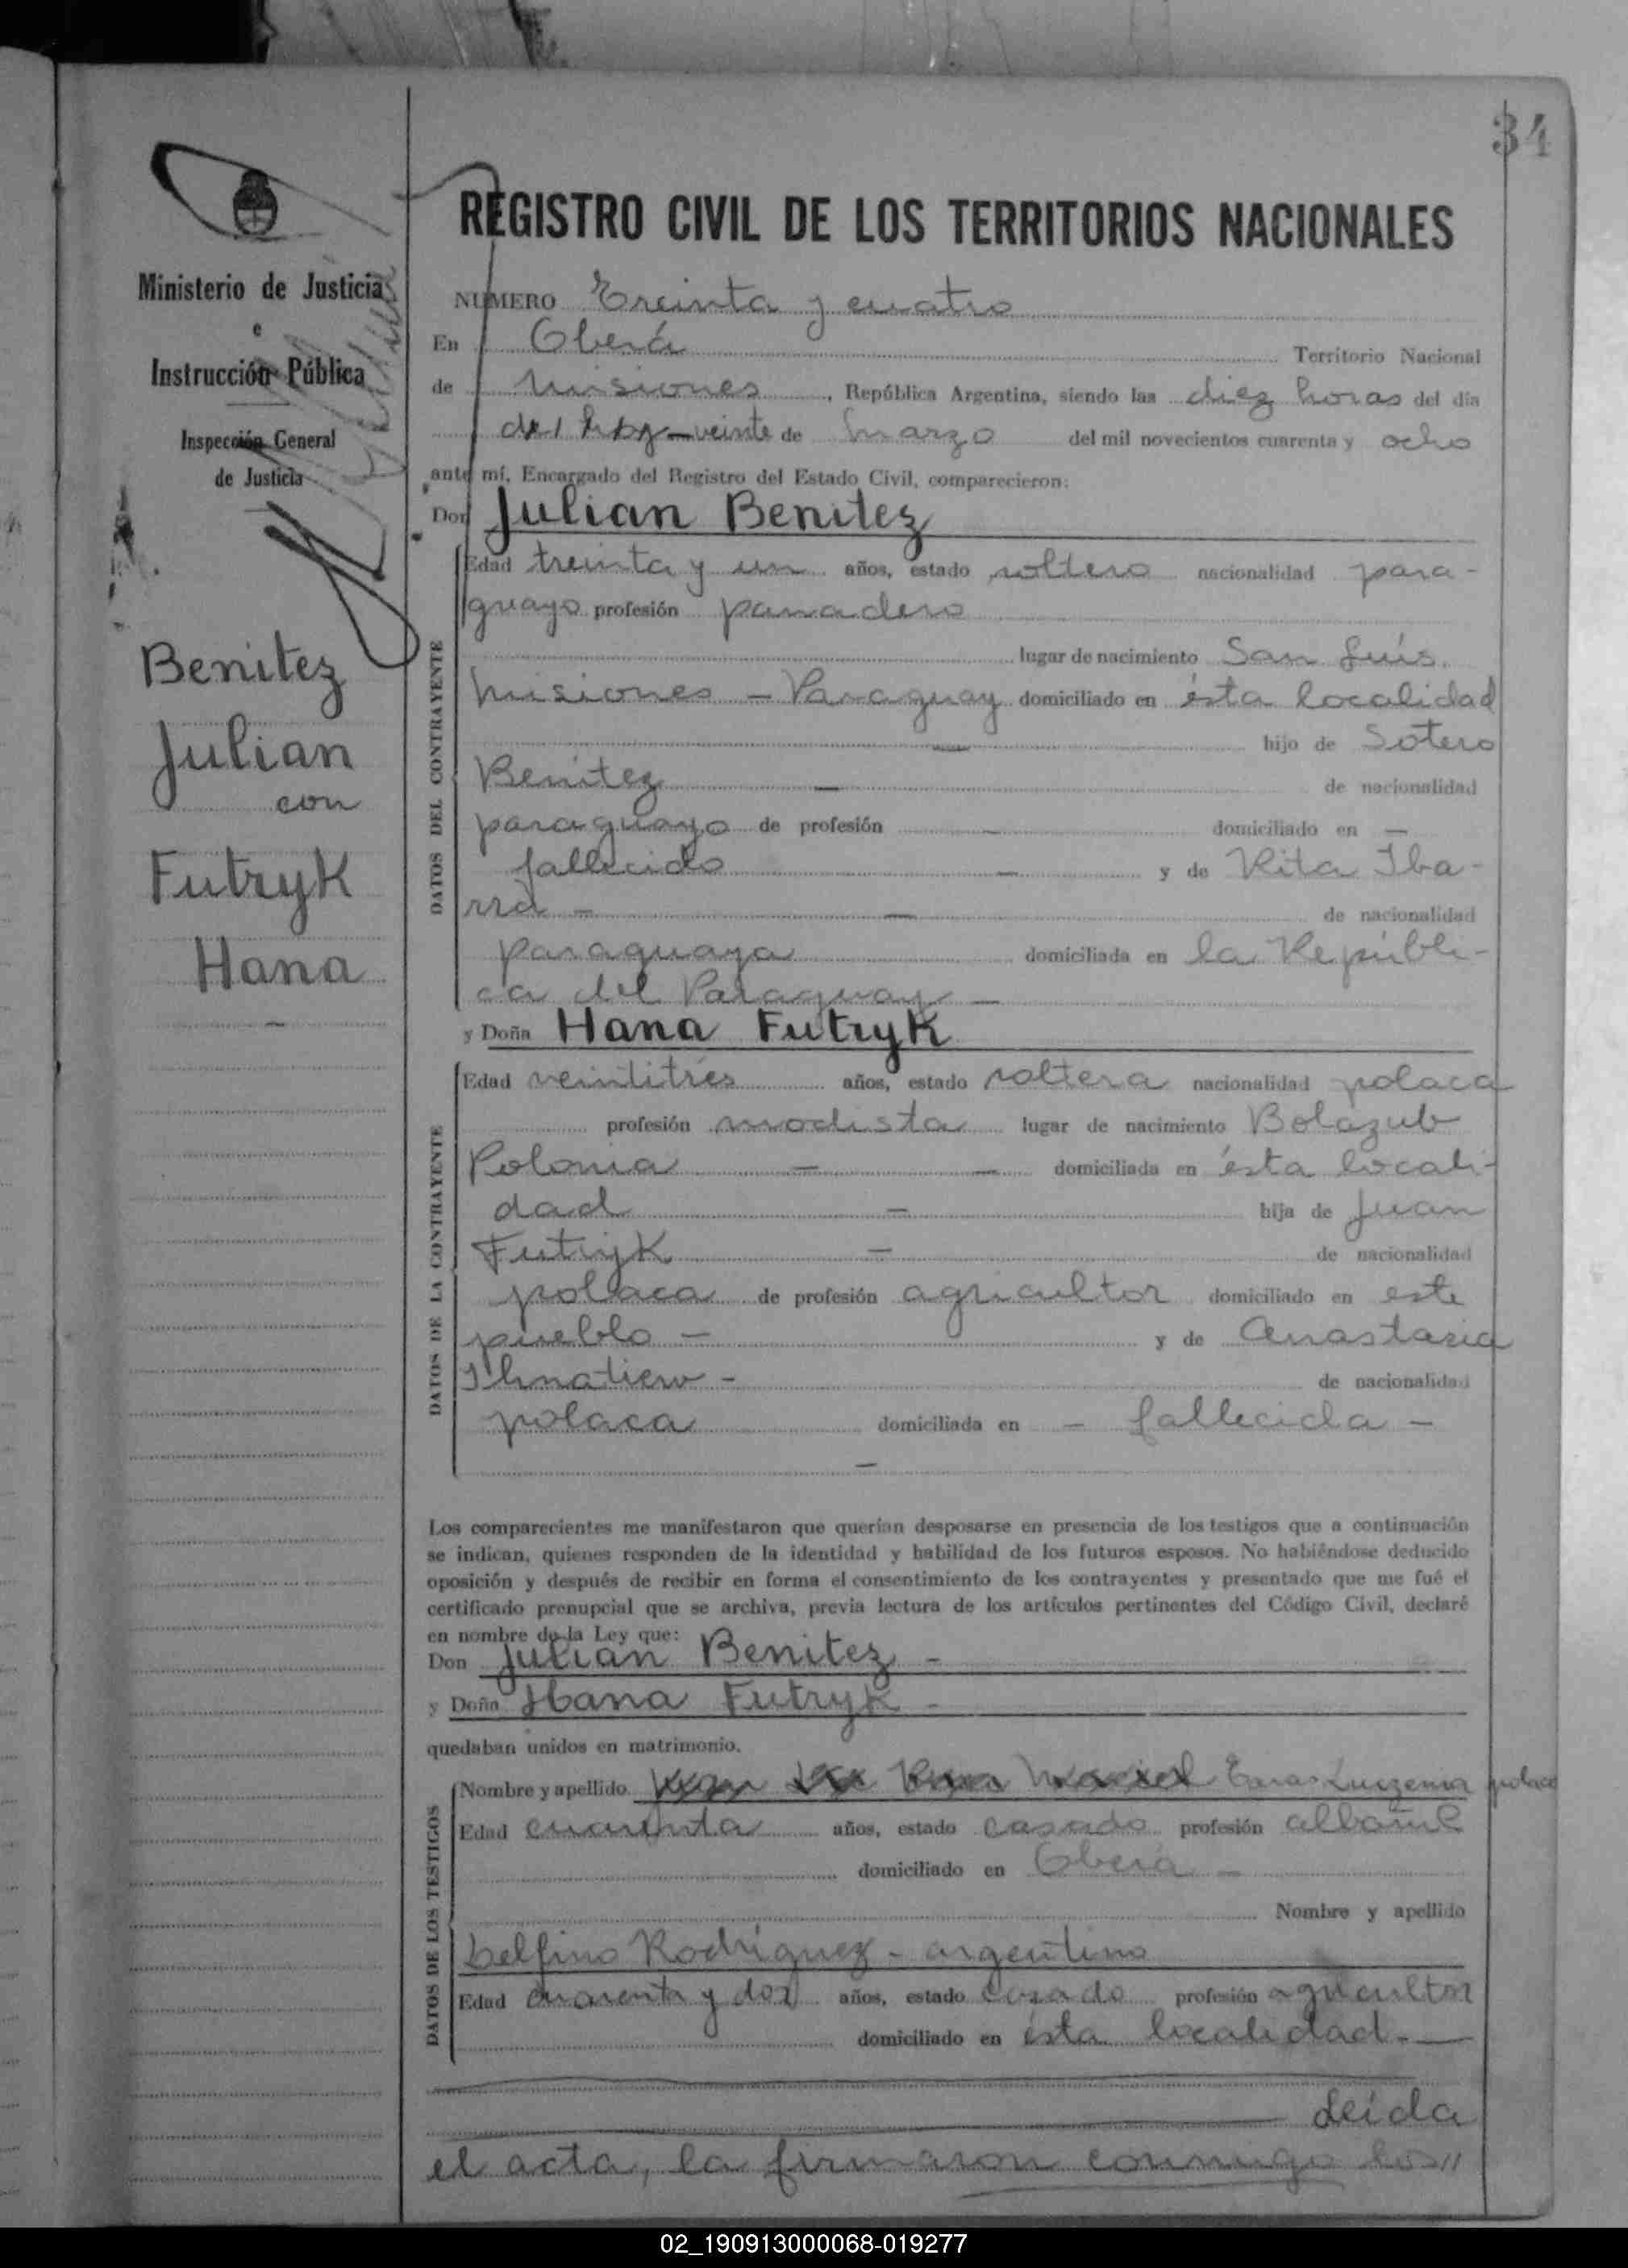 34
REGISTRO CIVIL DE LOS TERRITORIOS NACIONALES
Ministerio de Justicia
e
Instrucción Pública
Inspección General
de Justicia
Benitez
Julian
con
Futryk
Hana
NUMERO Treinta y cuatro
En Oberá Territorio Nacional
de Misiones, República Argentina, siendo las diez horas del día
de hoy veinte de Marzo del mil novecientos cuarenta y ocho
ante mí, Encargado del Registro del Estado Civil, comparecieron:
Don Julian Benitez
DATOS DEL CONTRAYENTE
Edad treinta y un años, estado soltero nacionalidad para-
guayo profesión panadero
lugar de nacimiento San Luis
Misiones - Paraguay domiciliado en ésta localidad
hijo de Sotero
Benitez de nacionalidad
paraguayo de profesión domiciliado en
fallecido y de Rita Iba-
rra - de nacionalidad
paraguaya domiciliada en la Repúbli-
ca del Paraguay -
y Doña Hana Futryk
DATOS DE LA CONTRAYENTE
Edad veintitres años, estado soltera nacionalidad polaca
profesión modista lugar de nacimiento Bolazub
Polonia domiciliada en ésta locali-
dad hija de Juan
Futryk de nacionalidad
polaca de profesión agricultor domiciliado en este
pueblo - y de Anastacia
Ihnatiew - de nacionalidad
polaca domiciliada en - fallecida -
Los comparecientes me manifestaron que querían desposarse en presencia de los testigos que a continuación
se indican, quienes responden de la identidad y habilidad de los futuros esposos. No habiéndose deducido
oposición y después de recibir en forma el consentimiento de los contrayentes y presentado que me fué el
certificado prenupcial que se archiva, previa lectura de los artículos pertinentes del Código Civil, declaré
en nombre de la Ley que:
Don Julian Benitez -
y Doña Hana Futryk -
quedaban unidos en matrimonio.
DATOS DE LOS TESTIGOS
Nombre y apellido polaco
Edad cuarenta años, estado casado profesión albañil
domiciliado en Oberá -
Nombre y apellido
Delfino Rodriguez - argentino
Edad cuarenta y dos años, estado casado profesión agricultor
domiciliado en ésta localidad.-
Leída
el acta, la firmaron conmigo los//
02_190913000068-019277